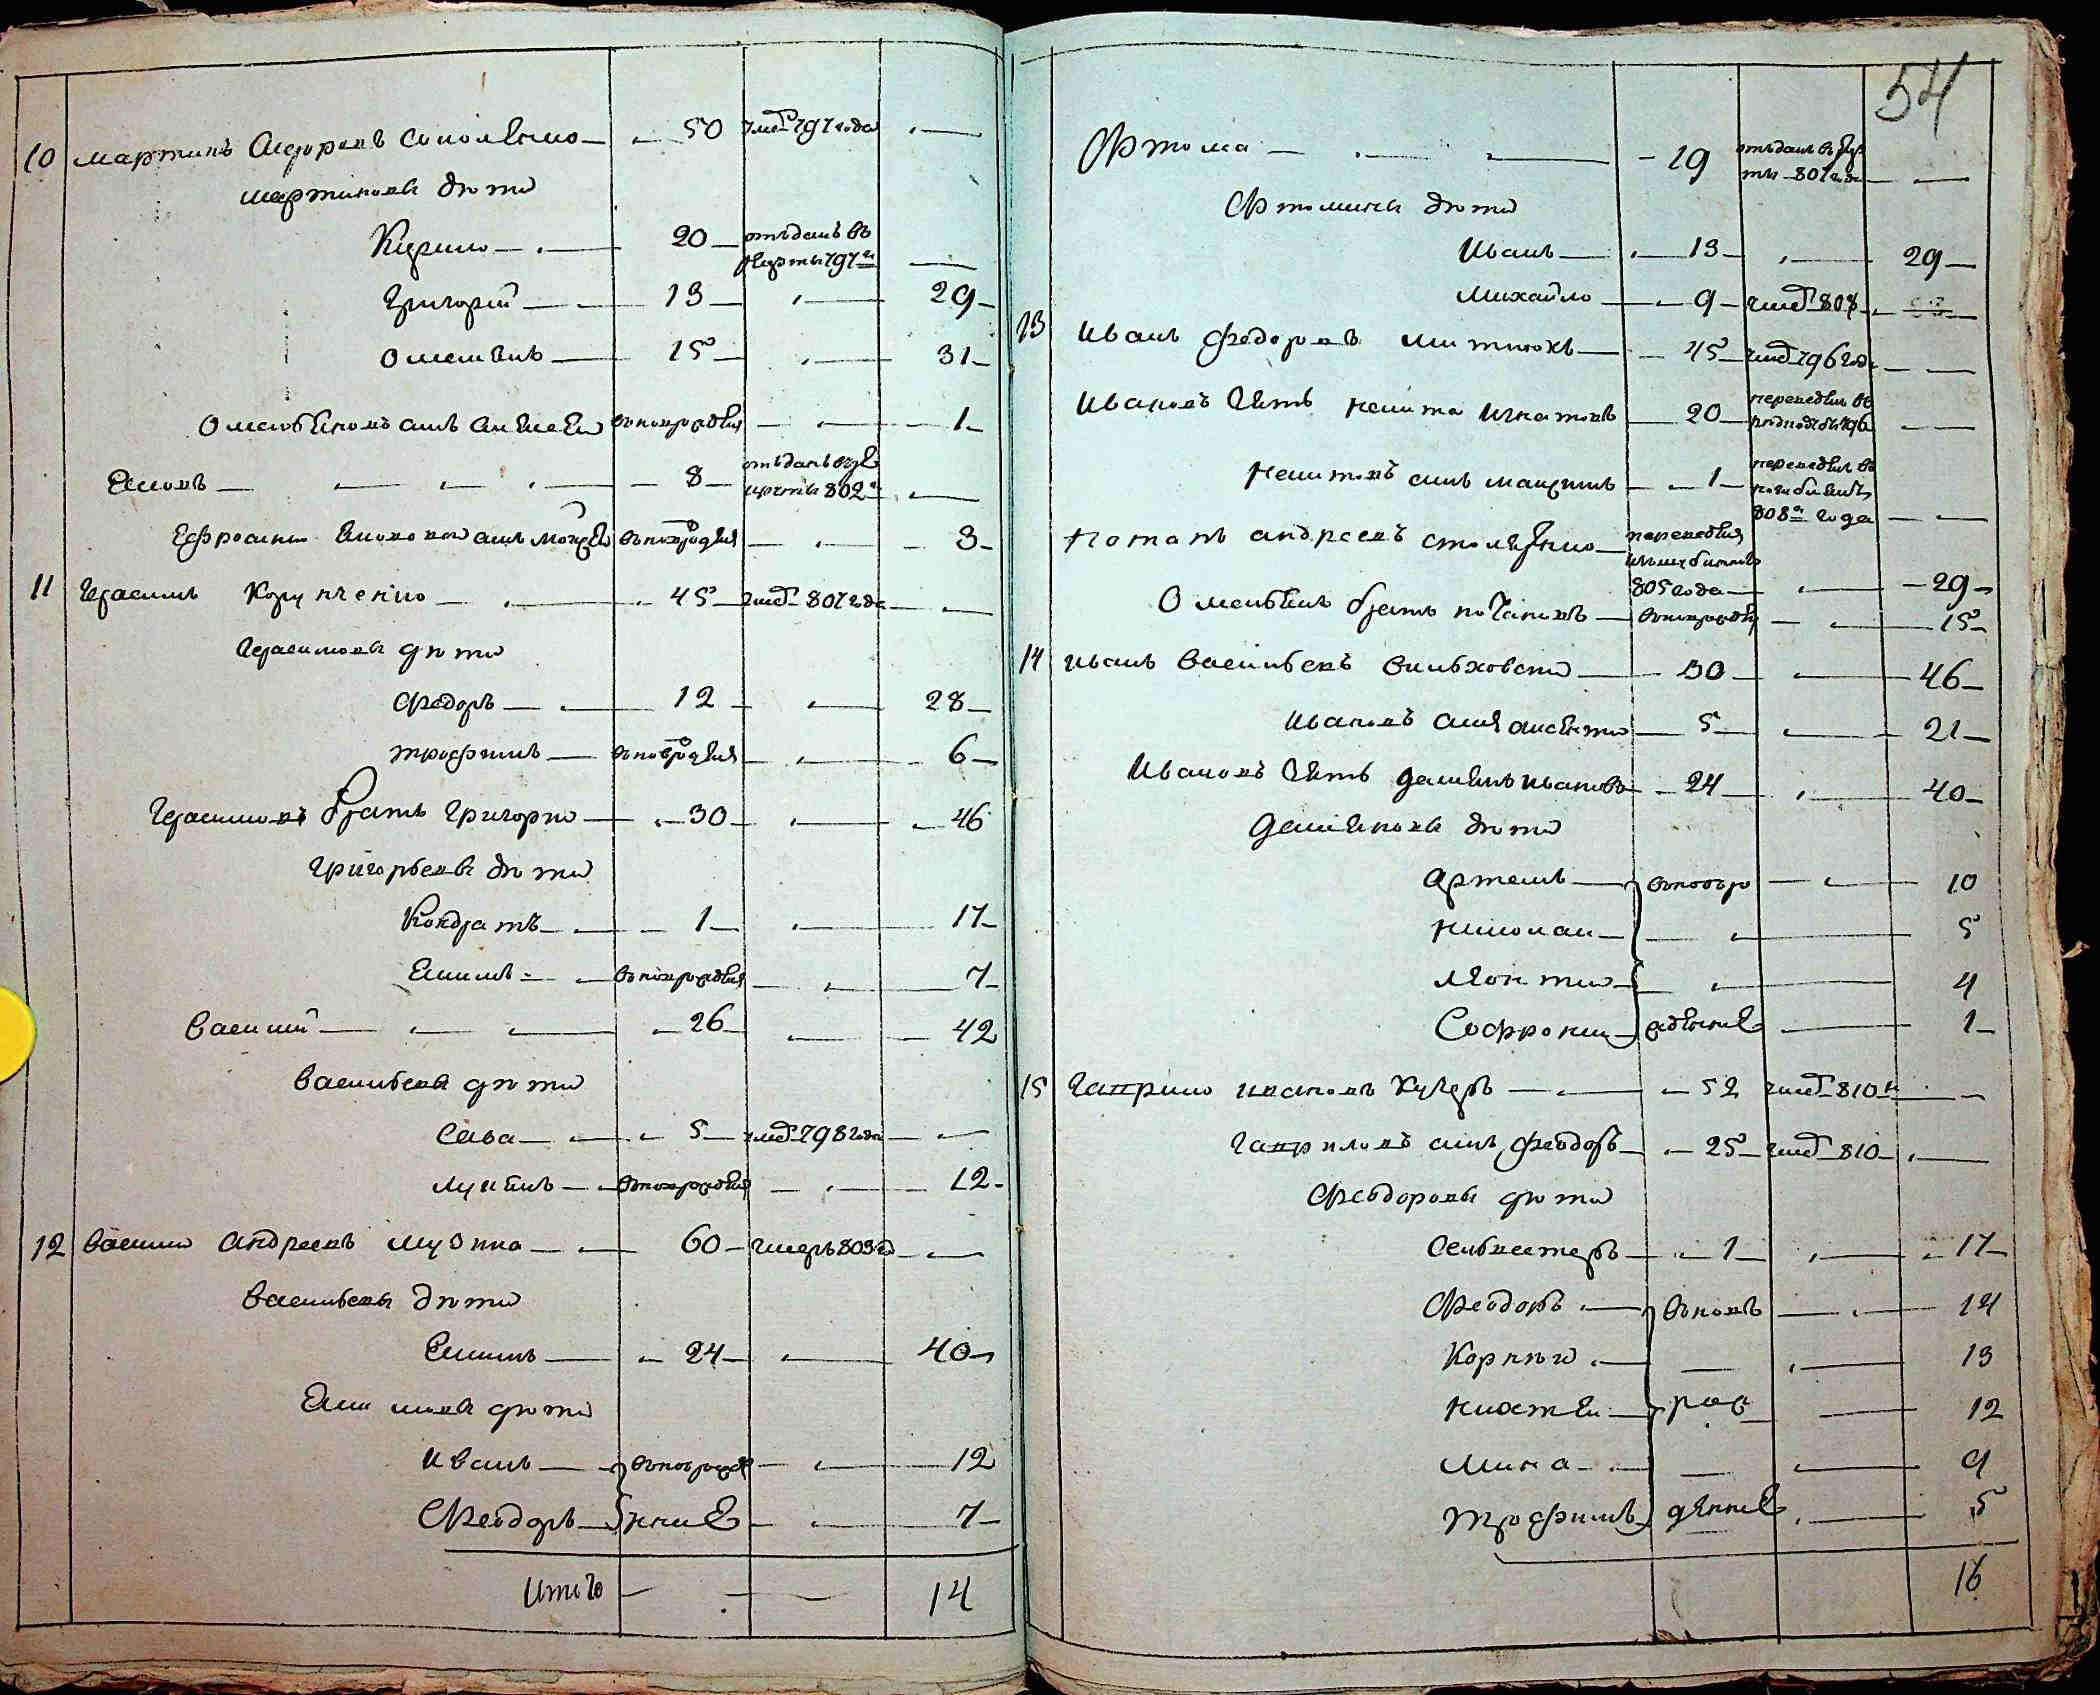 54
10 мартинъ Федоровъ соколенко 50 умеръ 797 года
мартиновы дѣти
Кирило 20 отъданъ въ рекруты 797 г
григорій 13 29
Омельянъ 15 31
Омельяновъ сынъ Алексей вновьрожденъ 1
Яковъ 8 отъданъ въ рекруты 802 г
Ефросимъ вновьрожденъ 3
11 герасимъ 45 умеръ 807 года
герасимовы дѣти
Федоръ 12 28
трофимъ вновьрожденъ 6
герасимовъ братъ григорій 30 46
григорьевы дѣти
Кондратъ 1 17
Екимъ вновьрожденъ 7
василій 26 42
васильевы дѣти
сава 5 умеръ 798 года
лукьянъ вновьрожденъ 12
12 василій андреевъ музика 60 умеръ 803 г
васильевы дѣти
Екимъ 24 40
Екимовы дѣти
иванъ вновьрож 12
Феодоръ денные 7
Итого 14
Фтома 19 отъданъ въ рекруты 807 года
Фтомины дѣти
иванъ 13 29
михайло 9 умеръ 808
13 иванъ Федоровъ митюкъ 45 умеръ 796 года
ивановъ зять никита игнатовъ 20 переведенъ въ 796
никитовъ сынъ максимъ 1 переведенъ въ
808 г года
Потапъ андреевъ столяренко переведенъ
805 года 29
Омельянъ братъ потаповъ вновьрожденъ 15
14 иванъ васильевъ вильховскій 30 46
ивановъ сынъ алексѣй 5 21
ивановъ зять демьянъ ивановъ 24 40
демьяновы дѣти
артемъ вновьро 10
николай 5
леонтій 4
Софроній жденные 1
15 гаврило ивановъ Кучеръ 52 умеръ 810 г
гавриловъ сынъ феодоръ 25 умеръ 810
Феодоровы дѣти
Селвестеръ 1 17
Феодоръ вновь 14
Корній 13
рож 12
мина 9
трофимъ денные 5
16